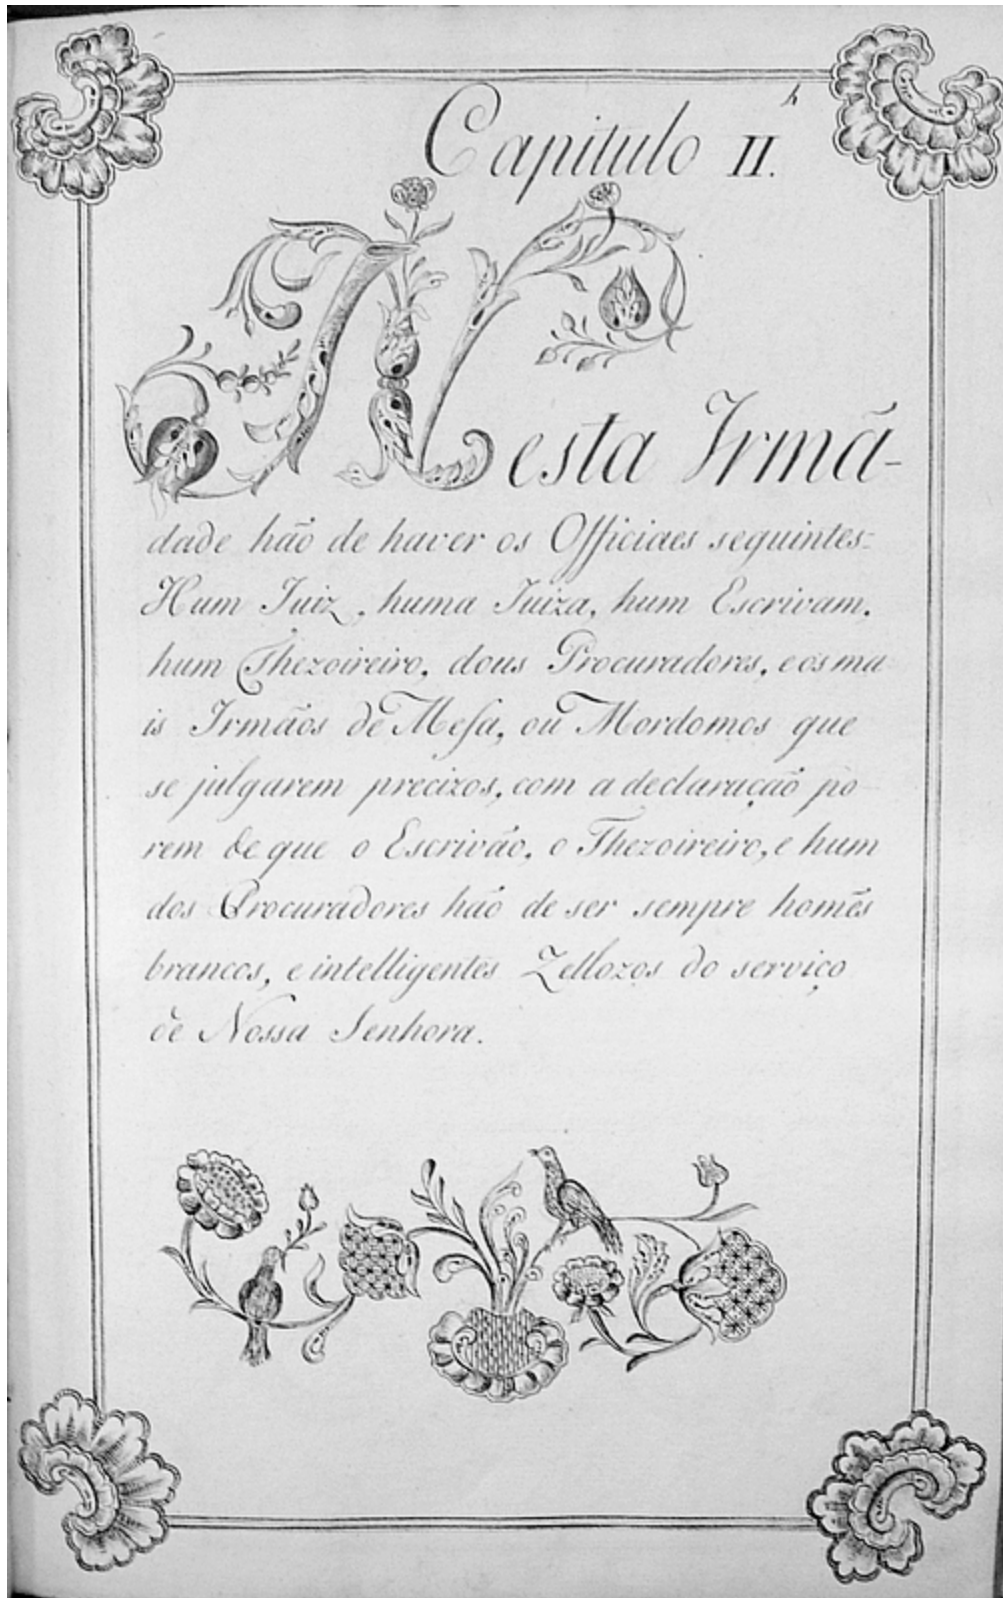 Capitulo II.
Nesta Irmã-
dade hão de haver os Officiaes seguintes:
Hum Juiz, huma Juiza, hum Escrivam,
hum Thezoireiro, dous Procuradores, e os ma
is Irmãos de Mesa, ou Mordomos que
se julgarem precizos, com a declaração po
rem de que o Escrivão, o Thezoireiro, e hum
dos Procuradores hão de ser sempre homẽs
brancos, e intelligentes Zellozos do serviço
de Nossa Senhora.